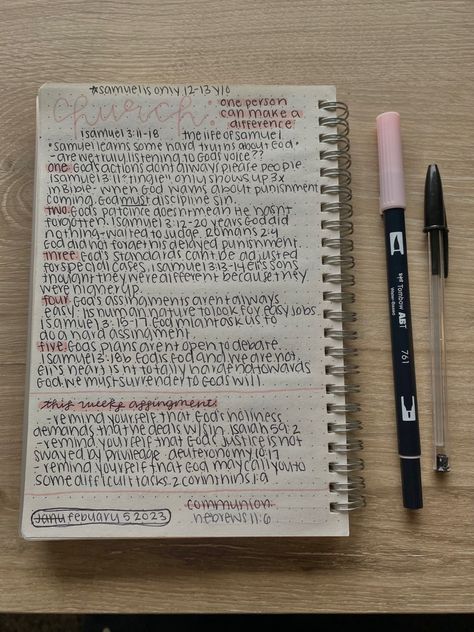 *samuel is only 12-13 y/o
church:
one person
can make a
difference
1 samuel 3:11-18 the life of samuel
•samuel learns some hard truths about God•
-are we truly listening to God's voice??
one. God's actions dont always please people.
1 samuel 3:11 "tingle" only shows up 3x
in Bible - when God warns about punishment
coming. God must discipline sin.
two. God's patience doesn't mean He hasn't
forgotten. 1 samuel 3:12 - 20 years God did
nothing - waited to judge. romans 2:4
God did not forget his delayed punishment.
three. God's standards can't be adjusted
for special cases. 1 samuel 3:13-14 eli's sons
thought they were different because they
were higher up.
four. God's assignments aren't always
easy. 1t's human nature to look for easy jobs.
1 samuel 3:15-17 God might ask us to
do a hard assignment.
five. God's plans aren't open to debate.
1 samuel 3:18b God is God and we are not.
eli's heart isn't totally hardend towards
God. we must surrender to God's will.
this weeks assingment:
-remind yourself that God's holiness
demands that he deals w/ sin. isaiah 59:2
-remind yourself that God's justice is not
swayed by priviledge. deuteronomy 10:17
-remind yourself that God may call you to
some difficult tasks. 2 corinthians 1:9
communion
hebrews 11:6
Janu Febuary 5 2023
Tombow ABT
761